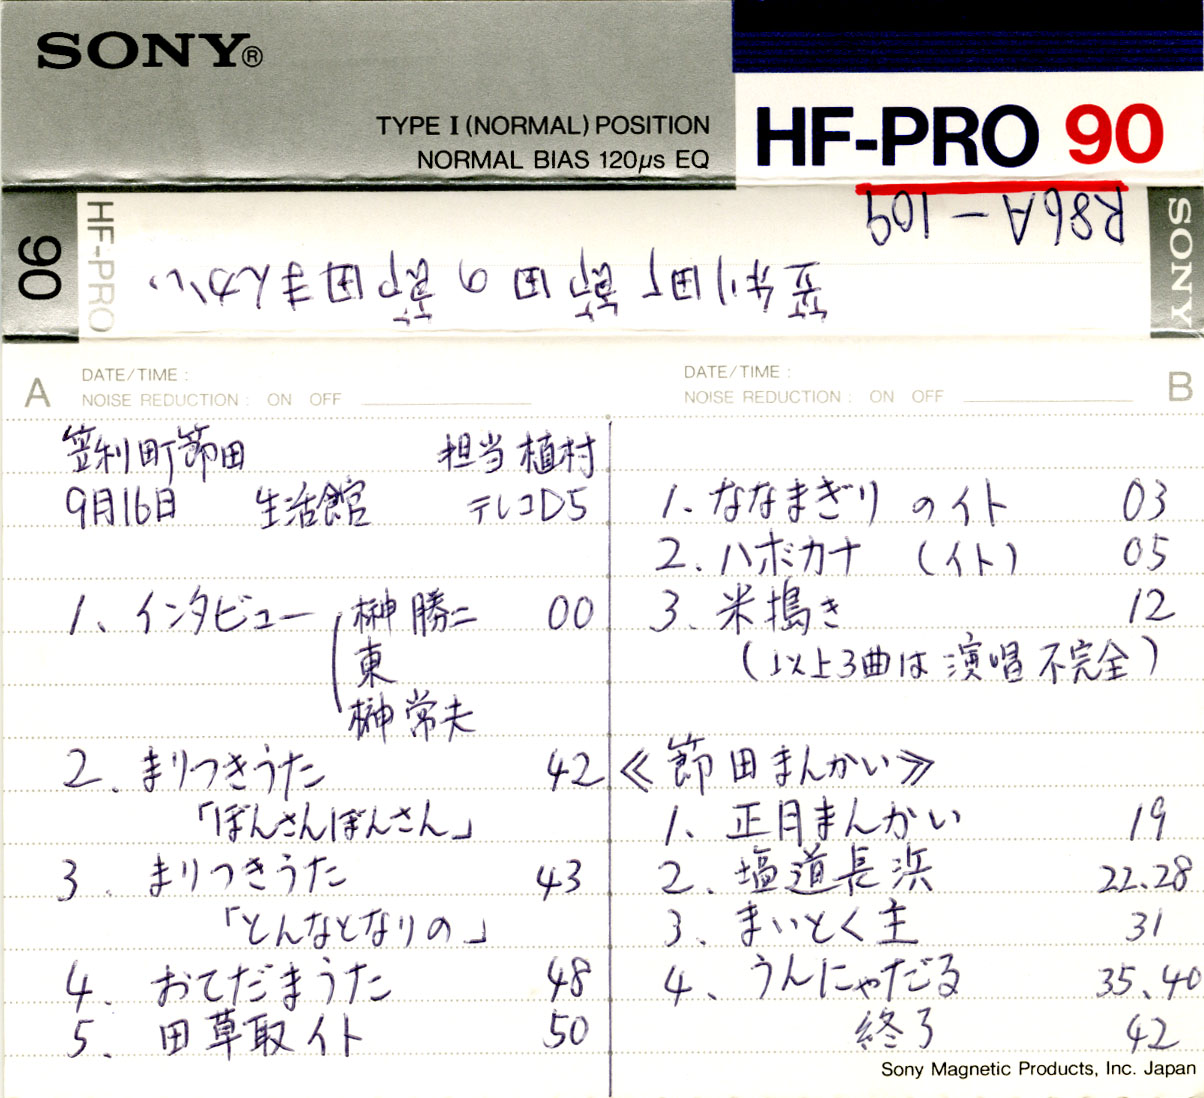 SONY®
TYPE I (NORMAL) POSITION
NORMAL BIAS 120μs EQ
HF-PRO 90
90
HF-PRO
R86A-109
笠利町節田の節田まんかい
SONY
A
DATE/TIME :
NOISE REDUCTION : ON OFF
笠利町節田 担当 植村
9月16日 生活館 テレコD5
1. インタビュー 榊 勝二 00
東
榊 常夫
2. まりつきうた 42
「ぼんさんぼんさん」
3. まりつきうた 43
「とんなとなりの」
4. おてだまうた 48
5. 田草取イト 50
DATE/TIME :
NOISE REDUCTION : ON OFF
B
1. ななまぎり のイト 03
2. ハボカナ (イト) 05
3. 米搗き 12
(以上3曲は演唱不完全)
≪節田まんかい≫
1. 正月まんかい 19
2. 塩道長浜 22.28
3. まいとく主 31
4. うんにゃだる 35、40
終了 42
Sony Magnetic Products, Inc. Japan